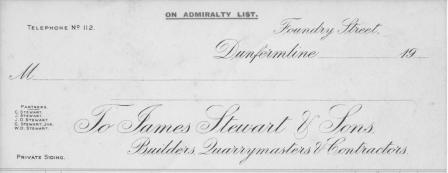 ON ADMIRALTY LIST.
TELEPHONE Nº 112.
Foundry Street,
Dunfermline 19
M
PARTNERS.
C. STEWART.
J. STEWART.
J. D. STEWART.
C. STEWART, JNR.
W. D. STEWART.
To James Stewart & Sons,
Builders, Quarrymasters & Contractors.
PRIVATE SIDING.